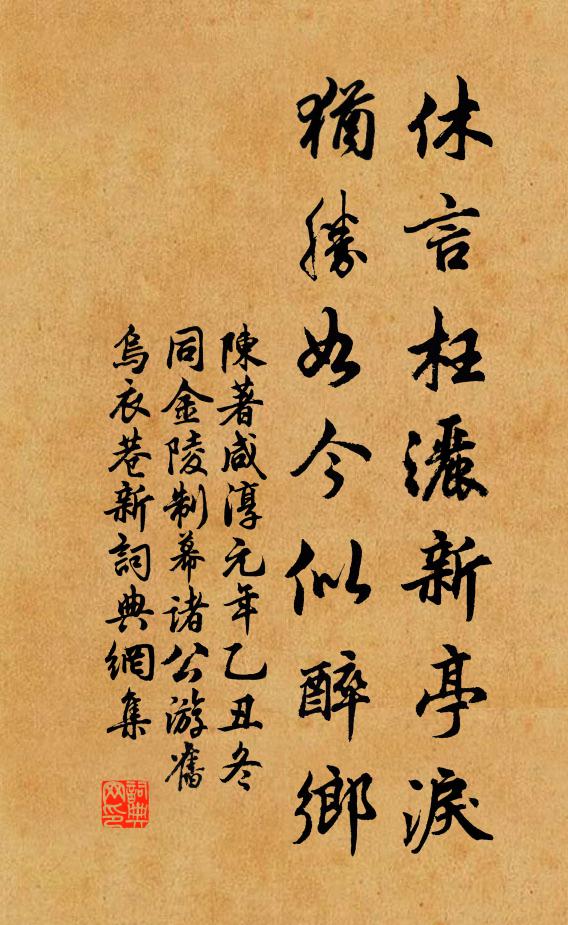 休言枉灑新亭淚
猶勝如今似醉鄉
陳著咸淳元年乙丑冬
同金陵制幕諸公游舊
烏衣巷新詞典網集
詞典
网印